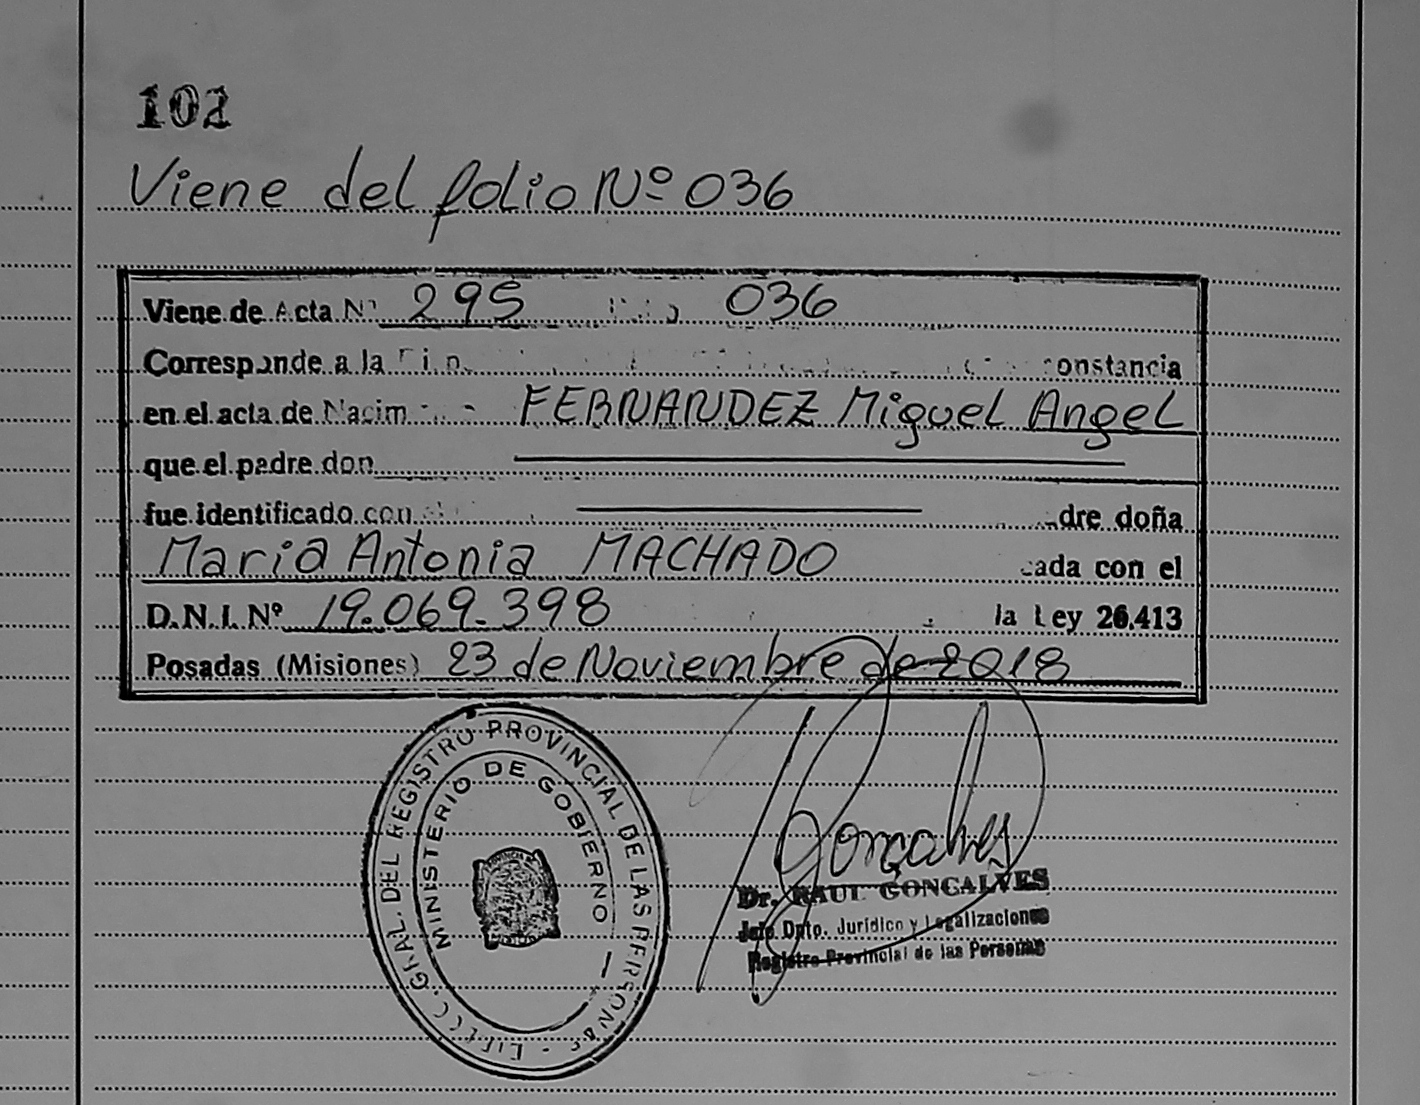 102
Viene del folio Nº 036
Viene de Acta Nº 295 036
Corresponde a la constancia
en el acta de Nacim FERNANDEZ Miguel Angel
que el padre don
fue identificado con dre doña
Maria Antonia MACHADO cada con el
D.N.I. Nº 19.069.398 la Ley 26.413
Posadas (Misiones) 23 de Noviembre de 2018
GRAL. DEL REGISTRO PROVINCIAL DE LAS PERSONAS
MINISTERIO DE GOBIERNO
Gonçalves
Dr. RAUL GONCALVES
Jefe Dpto. Jurídico y Legalizaciones
Registro Provincial de las Personas